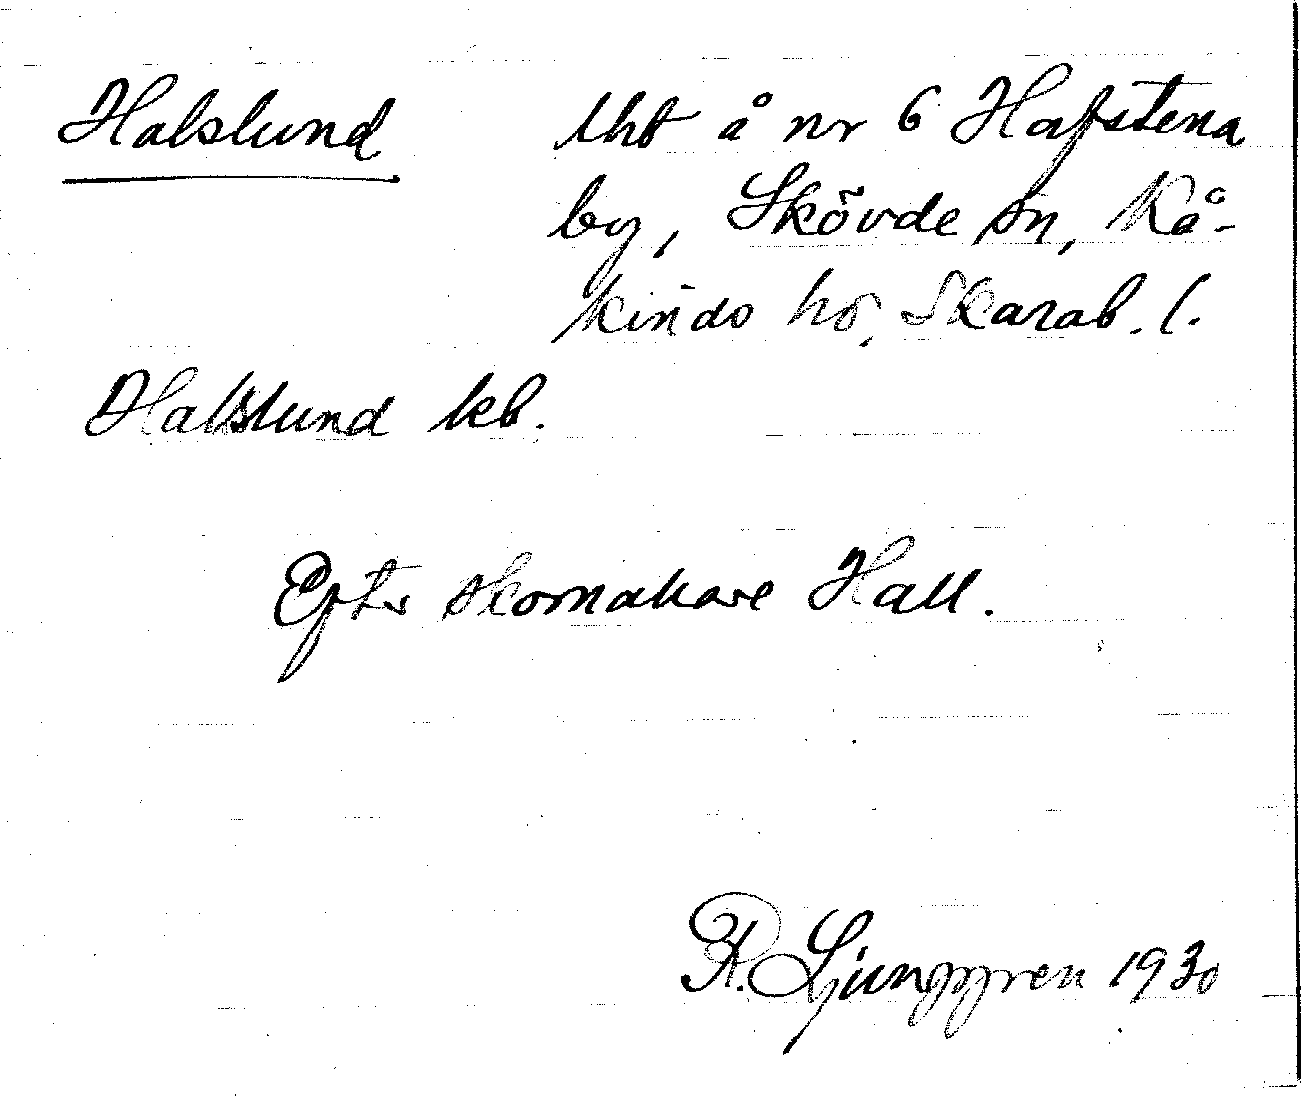 Halslund
lht å nr 6 Hafstena
by, Skövde sn, Kå-
kinds hd, Skarab. l.
Hallslund kb.
Efter skomakare Hall.
R. Ljunggren 1930